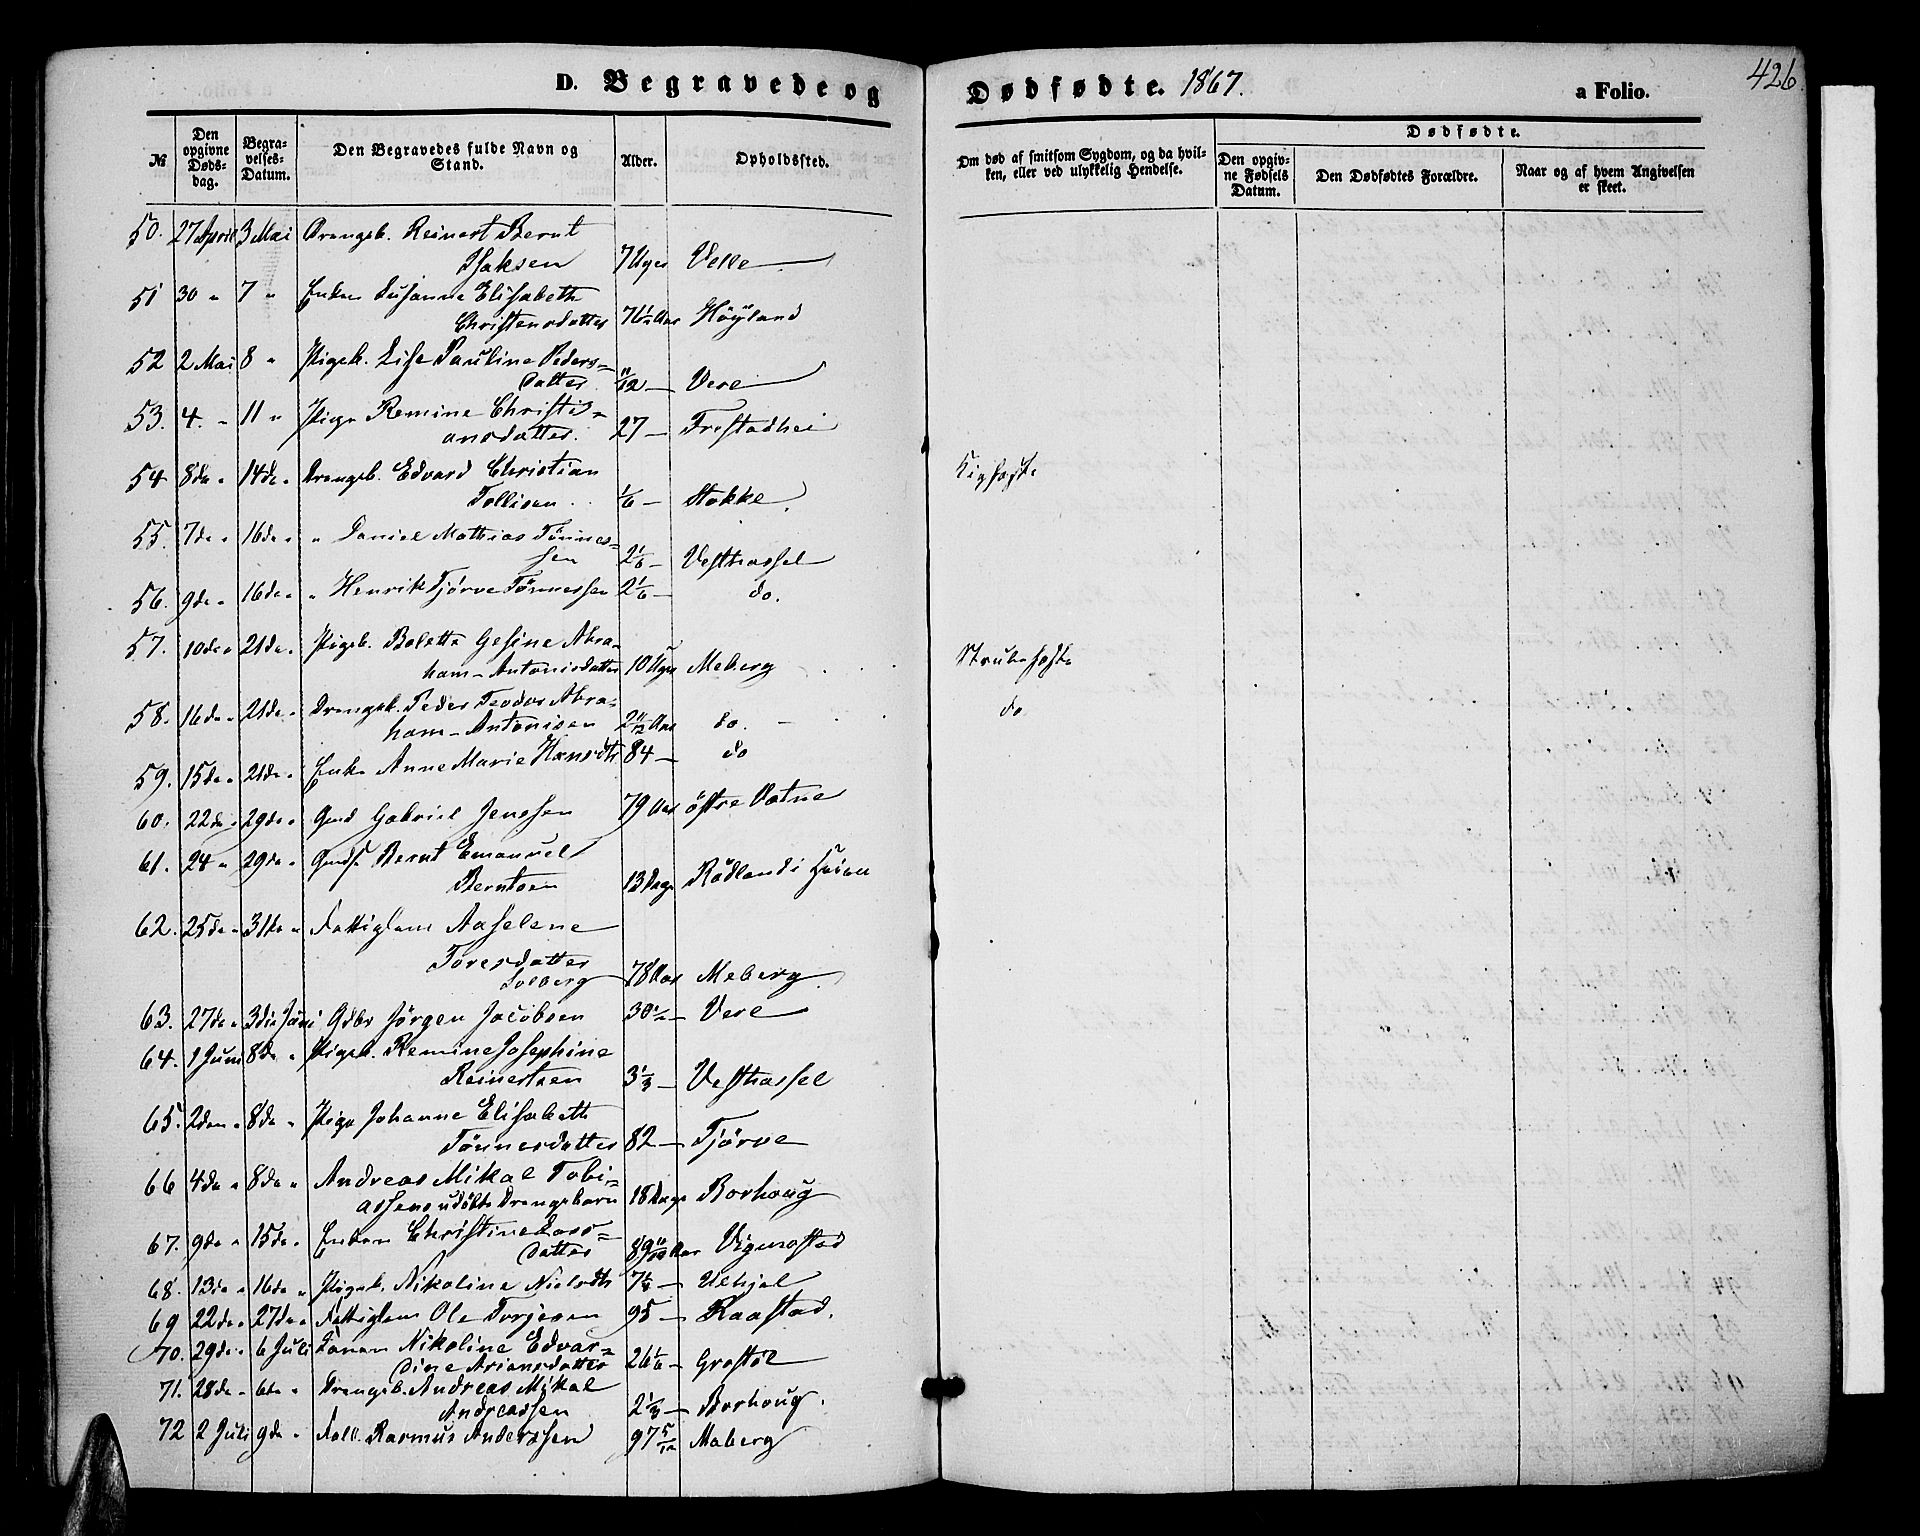 D. Begravede og Dødfødte. 1867. a Folio. 426.
№ Den opgivne Døds-dag. Begra-velses-Datum. Den Begravedes fulde Navn og Stand. Alder. Opholdssted. Om død af smitsom Sygdom, og da hvil-ken, eller ved ulykkelig Hendelse. Dødfødte. Den opgiv-ne Fødsels Datum. Den Dødfødtes Forældre. Naar og af hvem Angivelsen er skeet.
50. 27 April 3 Mai Drengeb. Reinert Bernt
Isaksen 7 Uger Velle
51 30 " 7 " Enken Susanne Elisabeth
Christensdatter 76½ Aar Höyland
52 2 Mai 8 " Pigeb. Lise Pauline Peders=
datter 11/12 — Vere
53. 4. " 11 " Pige Remine Christi=
ansdatter. 27 — Frestadhei
54 8de " 14de " Drengeb. Edvard Christian
Tollisen 1/6 — Stokke.
55. 7de " 16de " " Daniel Mathias Tönnes=
sen 2 1/6 — Vesthassel
56. 9de " 16de " " Henrik Tjörve Tönnessen 2 1/6 — do.
57. 10de " 21de " Pigeb. Bolette Gesine Abra=
ham-Antonisdatter 10 Uger Meberg Strubehoste
58. 16de " 21de " Drengeb. Peder Teodor Abra=
ham-Antonisen 2 11/12 Aar do. do
59. 15de " 21de " Enke Anne Marie Hansdtr 84 — do
60. 22de " 29de " Gmd Gabriel Jenssen 79 Aar östre Vatne
61. 24 " 29de " Gmds. Bernt Emanuel
Berntsen 13 Dage Rödland i Heien
62. 25de " 31te " Fattiglem Aaselene
Toresdatter
Solberg 78 Aar Meberg.
63. 27de " 3die Juni Gdbr Jörgen Jacobsen 30½ — Vere
64. 1 Juni 8de " Pigeb. Remine Josephine
Reinertsen 3⅓ — Vesthassel
65. 2den " 8de " Pige Johanne Elisabeth
Tönnesdatter 82 — Tjörve
66 4de " 8de " Andreas Mikal Tobi=
assens udöbte Drengebarn 18 Dage Borhoug
67. 9de " 15de " Enken Christine Lars=
datter 89 Aar Vigmostad
68. 13de " 16de " Pigeb. Nikoline Nielsdtr 7¼ —
69 22de " 27de " Fattiglem Ole Torjesen 95 — Raastad.
70. 29de " 6 Juli Konen Nikoline Edvar=
dine Ariansdatter 26 1/6 —
71. 28de " 6te " Drengeb. Andreas Mikal
Andreassen 2⅓ — Borhoug.
72 2 Juli 9de " Rasmus Anderssen 97 5/12 — Maberg